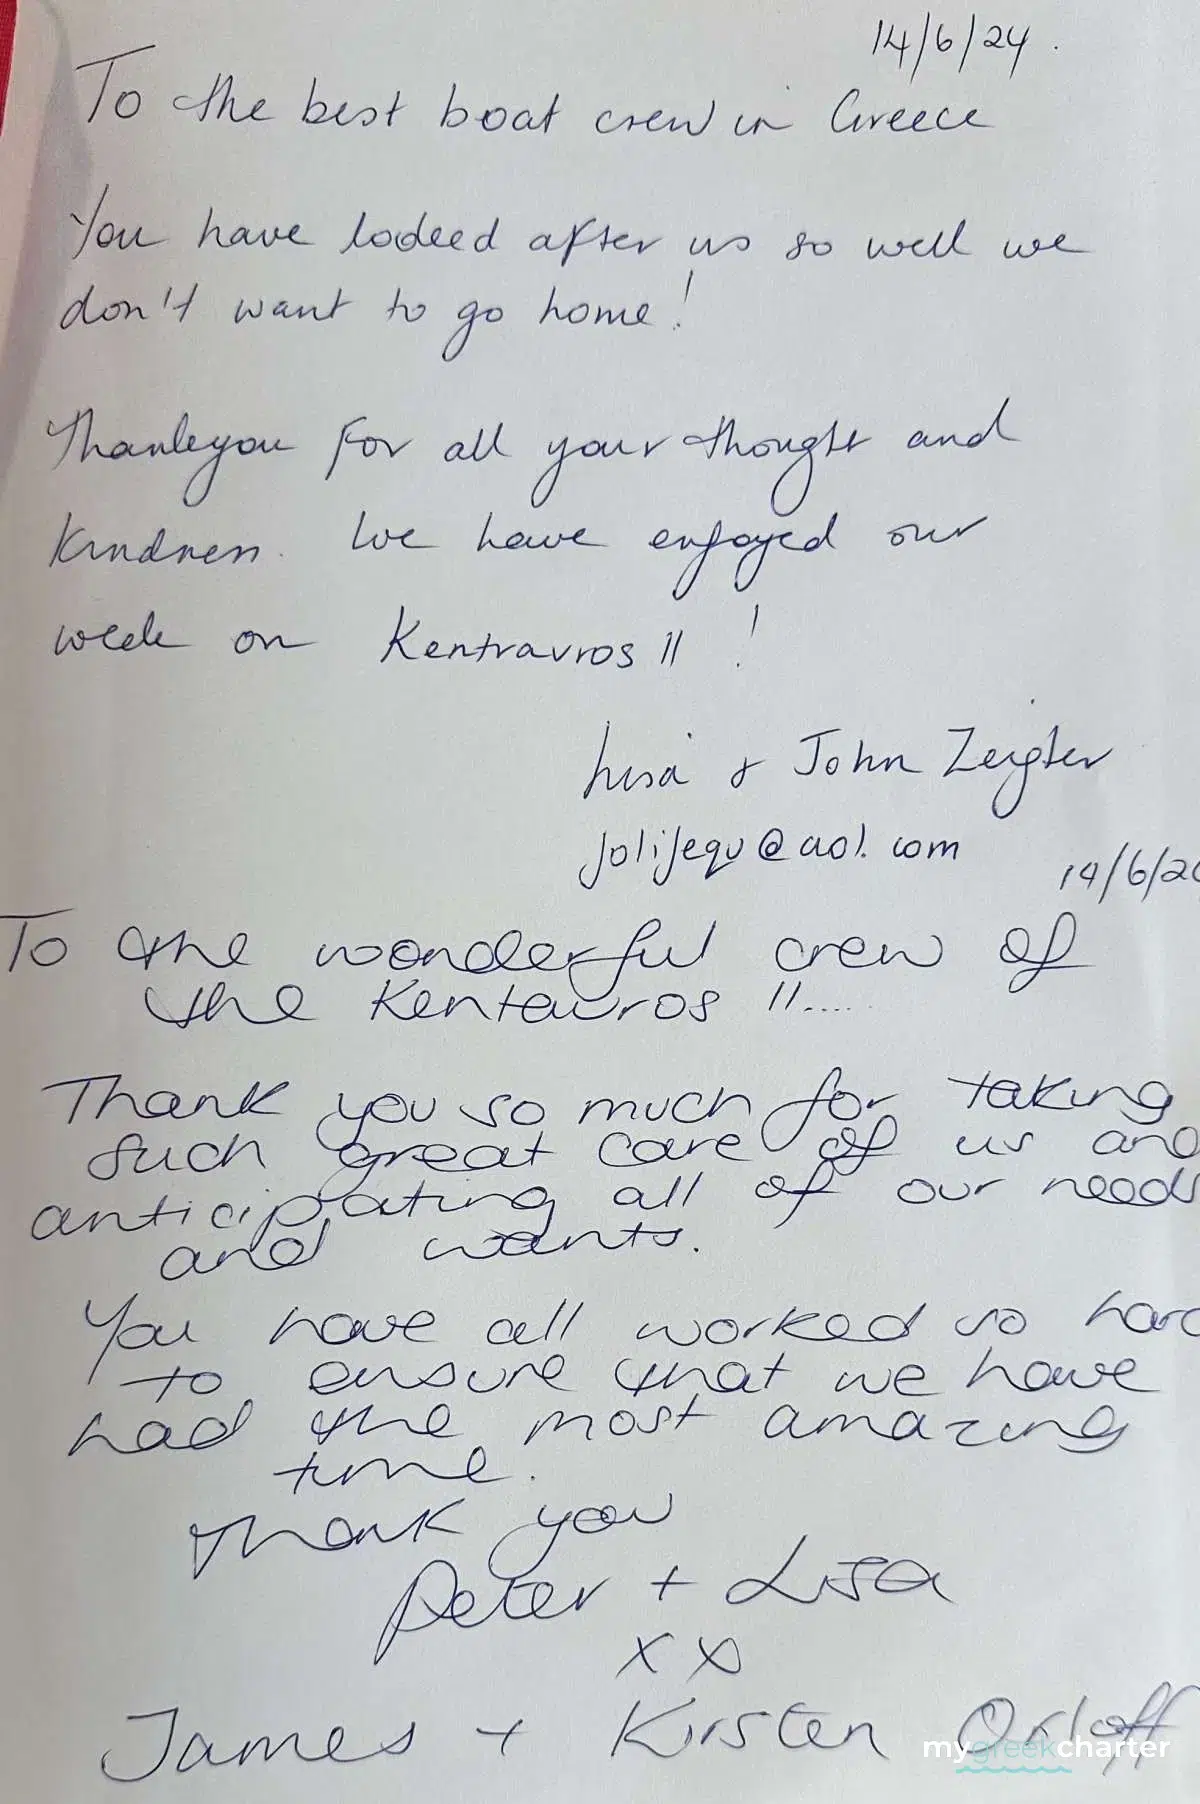 14/6/24.
To the best boat crew in Greece
You have looked after us so well we
don't want to go home!
Thankyou for all your thought and
Kindness. We have enjoyed our
week on Kentravros II !
Lisa & John Zeigler
jolijequ@aol.com
14/6/20
To the wonderful crew of
the Kentavros II.....
Thank you so much for taking
such great care of us and
anticipating all of our needs
and wants.
You have all worked so hard
to ensure that we have
had the most amazing
time.
Thank you
Peter + Lisa
xx
James + Kirsten Orloff
mygreekcharter